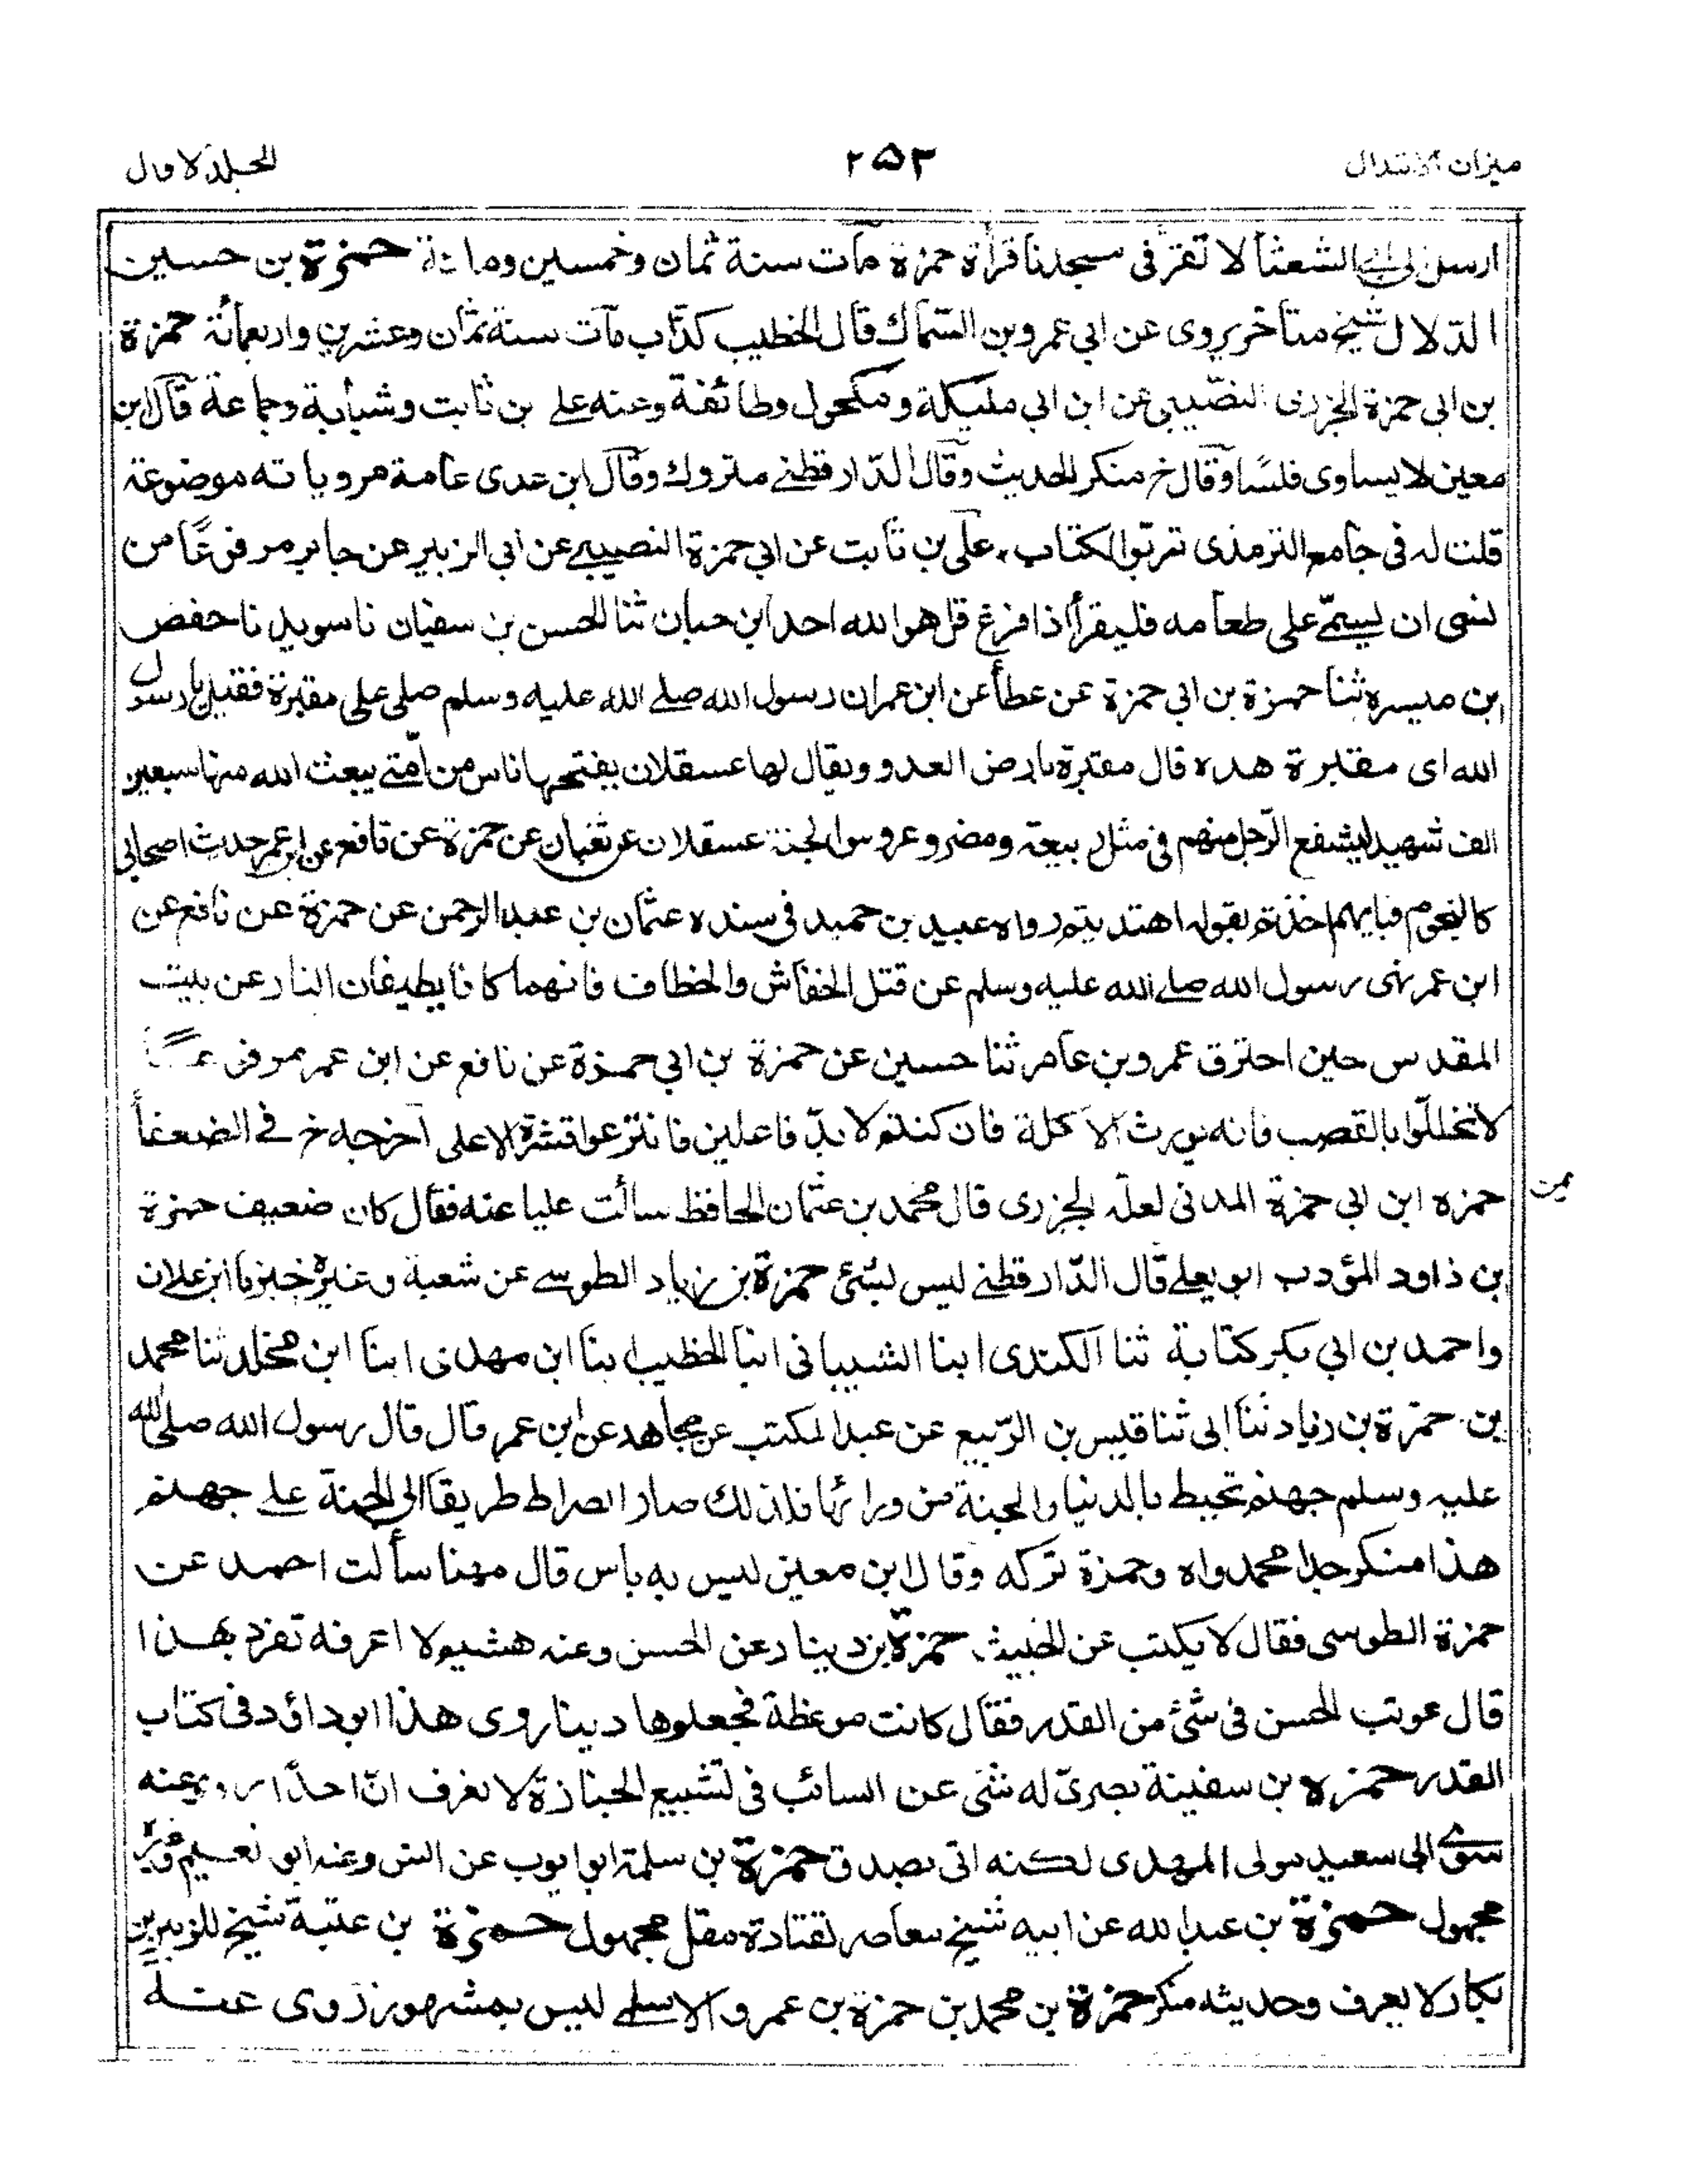 ميزان الاعتدال ٢٥٣ المجلد الاول
ارسل الى ابى الشعثأ لا تقرٔ فى مسجدنا قرأة حمزة مات سنة ثمان وخمسين ومائة حمزة بن حسين
الدّلال شيخ متأخر يروى عن ابي عمرو بن السّماك قال الخطيب كذّاب مات سنة ثمان وعشرين واربعمائة حمزة
بن ابى حمزة الجزرى النصّيبى عن ابن ابي مليكة ومكحول وطائفة وعنه على بن ثابت وشبابة وجماعة قال ابن
معين لا يساوى فلسًا وقال خ منكر الحديث وقال الدّارقطنے متروك وقال ابن عدى عامة مروياته موضوعة
قلت له فى جامع الترمذى تربّوا الكتاب، على بن ثابت عن ابي حمزة النصيبے عن ابى الزبير عن جابر مرفوعًا من
نسى ان يسمّے على طعامه فليقرأ اذا فرغ قل هوا لله احد ابن حبان ثنا الحسن بن سفيان نا سويد نا حفص
بن ميسره ثنا حمزة بن ابي حمزة عن عطأ عن ابن عمر ان رسول الله صلے الله عليه وسلم صلى على مقبرة فقيل يا رسول
الله اى مقبرة هذه قال مقبرة بارض العدو ويقال لها عسقلان يفتحها ناس من امّتے يبعث الله منها سبعين
الف شهيد ليشفع الرّجل منهم فى مثل ربيعة ومضر وعروس الجنة عسقلان عن حمزة عن نافع عن ابن عمر حديث اصحابى
كالنجوم فبايهم اخذتم بقوله اهتديتم رواه عبيد بن حميد فى سنده عثمان بن عبد الرحمن عن حمزة عن نافع عن
ابن عمر نهى رسول الله صلے الله عليه وسلم عن قتل الخفاش والخطاف فانهما كانا يطيفان النار عن بيت
المقدس حين احترق عمرو بن عامر ثنا حسين عن حمزة بن ابي حمزة عن نافع عن ابن عمر مرفوعًا
لا تخللّوا بالقصب فانه يورث الاكلة فان كنتم لا بدّ فاعلين فانتزعوا قشرة الاعلى اخرجه خ فے الضعفأ
حمزه ابن ابي حمزة المدنى لعلّه الجزرى قال محمد بن عثمان الحافظ سألت عليا عنه فقال كان ضعيف حمزة
بن داود المؤدب ابو يعلے قال الدّارقطنے ليس بشئ حمزة بن زياد الطوسے عن شعبة وغيره اخبرنا ابن علان
واحمد بن ابي بكر كتابة ثنا الكندى ابنا الشيبانى انبا الخطيب بنا ابن مهدى ابنا ابن مخلد ثنا محمد
بن حمزة بن زياد ثنا ابى ثنا قيس بن الرّبيع عن عبد المكتب عن مجاهد عن ابن عمر قال قال رسول الله صلى الله
عليه وسلم جهنم تحيط بالدنيا والجنة من ورائها فلذلك صار الصراط طريقا الى الجنة علے جهنم
هذا منكر جدا محمد واه وحمزة تركه وقال ابن معين ليس به باس قال مهنا سألت احمد عن
حمزة الطوسى فقال لا يكتب عن الخبيث حمزة بن دينار عن الحسن وعنه هشيم ولا اعرفه تفرد بهذا
قال عوتب الحسن فى شئ من القدر فقال كانت موعظة فجعلوها دينا روى هذا ابو داؤد فى كتاب
القدر حمزه بن سفينة بصرىّ له شى عن السائب فى تشييع الجنازة لا نعرف انّ احدًا روى عنه
سوى ابى سعيد مولى المهدى لكنه اتى بصدق حمزة بن سلمة ابو ايوب عن انس وعنه ابو نعيم وغيره
مجهول حمزة بن عبد الله عن ابيه شيخ معاصر لقتادة مقل مجهول حمزة بن عتبة شيخ للزبير بن
بكار لا يعرف وحديثه منكر حمزة بن محمد بن حمزة بن عمرو الاسلمے ليس بمشهور روى عنه